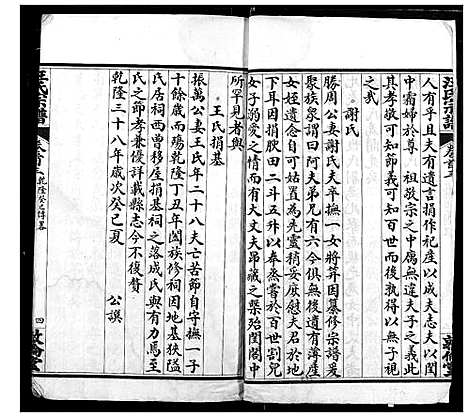 汪氏宗譜
卷首三
人有乎且夫有遺言捐作祀產以成夫志夫以閨
中霜婦於尊祖敬宗之中屬無違夫子之義此
其孝敬可知節義可知百世而後孰得以無子視
之哉
謝氏
勝周公妻謝氏夫卒撫一女將笄因纂修宗譜爰
聚族泉謂曰阿夫弟兄有六今俱無後遺有薄產
女姪遺命自可給奩為先靈稍妥庶慰夫君於地
下耳因捐求二十五升以奉蒸嘗於百世割兒
女子溺愛之情而有大丈夫昂藏之槩殆閨閣中
所罕見者與
王氏捐基
振萬公妻王氏年二十八夫亡苦節自守撫一子
十餘歲而殤乾隆丁丑年闔族修祠因地基狹隘
氏居祠西曾移屋捐基祠之落成氏與有力焉至
氏之節孝兼優詳載縣志今不復贅
乾隆三十八年歲次癸巳夏
公譔
汪氏宗譜
卷首三
乾隆癸巳傳畧
四
敦倫堂